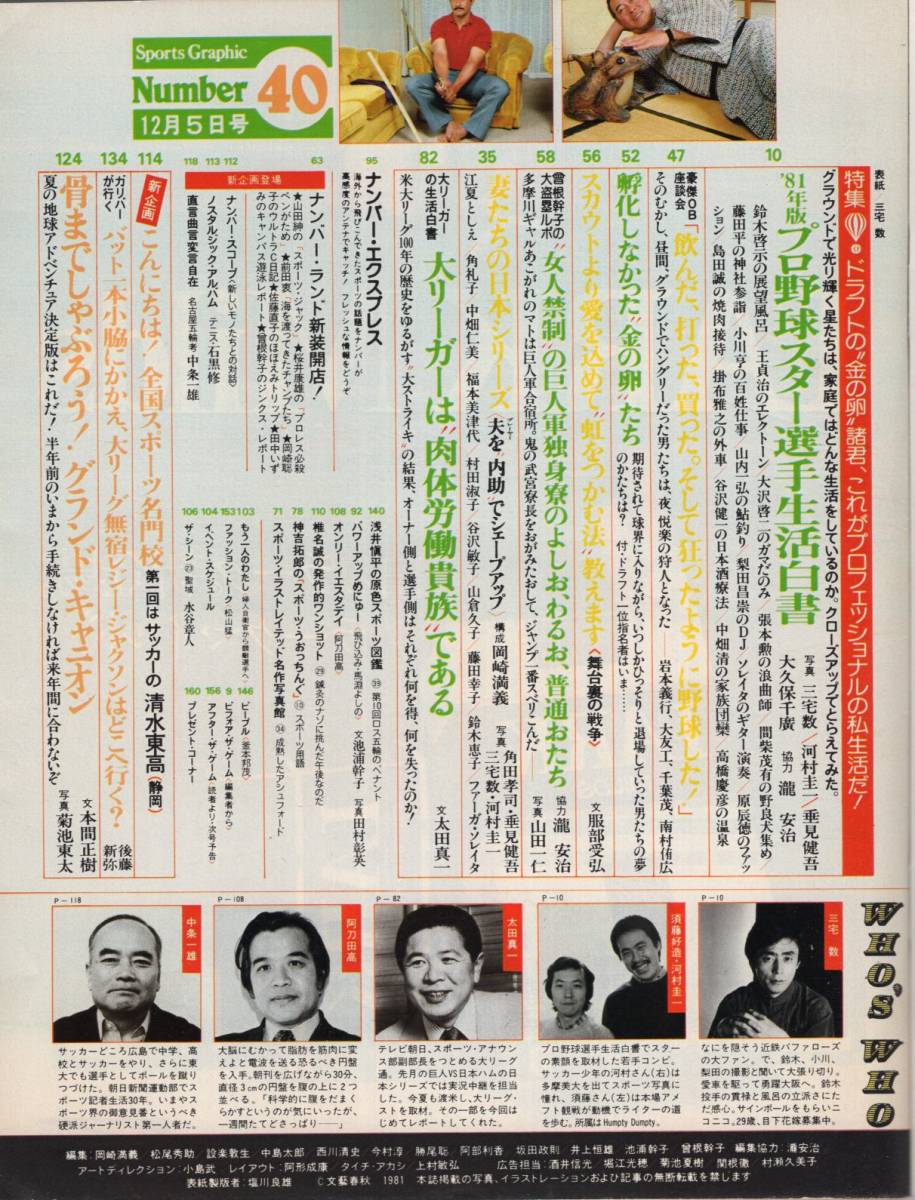 Sports Graphic
Number 40
12月5日号
表紙 三宅 数
特集 ドラフトの“金の卵”諸君、これがプロフェッショナルの私生活だ!
グラウンドで光り輝く星たちは、家庭ではどんな生活をしているのか。クローズアップでとらえてみた。
10
'81年版プロ野球スター選手生活白書
写真 三宅数/河村圭一/垂見健吾
大久保千廣 協力 瀧 安治
鈴木啓示の展望風呂/王貞治のエレクトーン/大沢啓二のガマだのみ/張本勲の浪曲師/間柴茂有の野良犬集め/
藤田平の神社参詣/小川亨の百姓仕事/山内一弘の鮎釣り/梨田昌崇のDJ/ソレイタのギター演奏/原辰徳のファッ
ション/島田誠の焼肉接待/掛布雅之の外車/谷沢健一の日本酒療法/中畑清の家族団欒/高橋慶彦の温泉
47
豪傑OB座談会
「飲んだ、打った、買った。そして狂ったように野球した!」
そのむかし、昼間、グラウンドでハングリーだった男たちは、夜、悦楽の狩人となった
岩本義行、大友工、千葉茂、南村侑広
52
孵化しなかった“金の卵”たち
期待されて球界に入りながら、いつしかひっそりと退場していった男たちの夢
のかたちは? 付・ドラフト一位指名者はいま……
56
スカウトより愛を込めて“虹をつかむ法”教えます〈舞台裏の戦争〉
文 服部受弘
58
曽根幹子の大盗塁ルポ
“女人禁制”の巨人軍独身寮のよしお、わるお、普通おたち
協力 瀧 安治
多摩川ギャルあこがれのマトは巨人軍合宿所。鬼の武宮寮長をおがみたおして、ジャンプ一番スベリこんだ——
写真 山田一仁
35
妻たちの日本シリーズ〈夫を“内助”でシェープアップ〉
プレーヤー
構成 岡崎満義
写真 角田孝司・垂見健吾
三宅数・河村圭一
江夏としえ 角礼子/中畑仁美/福本美津代/村田淑子/谷沢敏子/山倉久子/藤田幸子/鈴木恵子/ファーガ・ソレイタ
82
大リーガーの生活白書
大リーガーは“肉体労働貴族”である
文 太田真一
米大リーグ100年の歴史をゆるがす“大ストライキ”の結果、オーナー側と選手側はそれぞれ何を得、何を失ったのか!
95
ナンバー・エクスプレス
海外から飛びこんできたスポーツの話題をナンバーが
高感度のアンテナでキャッチ! フレッシュな情報をどうぞ
新企画登場
63
ナンバー・ランド新装開店!
★山田紳の「スポーツ・ジャック」★桜井康雄の「プロレス必殺
ペンがため」★前田衷「海を渡ってきたチャンプたち」★岡崎聡
子のウルトラC日記★佐藤直子のほほえみトリップ★田中いず
みのキャンパス遊泳レポート★曽根幹子のジンクス・レポート
112
ナンバー・スコープ〈新しいモノたちとの対話〉
113
ノスタルジック・アルバム テニス・石黒 修
118
直言曲言変言自在 名古屋五輪考 中条一雄
140
浅井慎平の原色スポーツ図鑑 ㊴ 第10回ロス五輪のペナント
92
パワーアップめにゅー 〈飛び込み・馬淵よしの〉 文 池浦幹子 写真 田村彰英
108
オンリー・イエスタデイ 〈阿刀田高〉
110
椎名誠の発作的ワンショット ㉙ 鍼灸のナゾに挑んだ午後なのだ
78
神吉拓郎の「スポーツ・うおっちんぐ」 ⑩ スポーツ用語
71
スポーツ・イラストレイテッド名作写真館 ㉞ 成熟したアシュフォード
103
もう一人のわたし 婦人自衛官から競艇選手へ
153
ファッション・トーク〈松山猛〉
104
イベント・スケジュール
106
ザ・シーン ㉓ 聖域 水谷章人
146
ピープル〈釜本邦茂〉
9
ビフォア・ザ・ゲーム〈編集者から〉
156
アフター・ザ・ゲーム〈読者より・次号予告〉
160
プレゼント・コーナー
114
新企画
こんにちは! 全国スポーツ名門校 第一回はサッカーの清水東高〈静岡〉
134
ガリバーが行く
バット一本小脇にかかえ、大リーグ無宿レジー・ジャクソンはどこへ行く?
後藤新弥
124
骨までしゃぶろう! グランド・キャニオン
文 本間正樹
写真 菊池東太
夏の地球アドベンチュア決定版はこれだ! 半年前のいまから手続きしなければ来年間に合わないぞ
WHO'S WHO
P-10
三宅 数
なにを隠そう近鉄バファローズの大ファン。で、鈴木、小川、梨田の撮影と聞いて大張り切り。愛車を駆って勇躍大阪へ。鈴木投手の貫禄と風呂の立派さにただ感心。サインボールをもらいニコニコ。29歳、目下花嫁募集中。
P-10
須藤好造・河村圭一
プロ野球選手生活白書でスターの素顔を取材した若手コンビ。サッカー少年の河村さん(右)は多摩美大を出てスポーツ写真に憧れ、須藤さん(左)は本場アメフト観戦が動機でライターの道を歩む。所属はHumpty Dumpty。
P-82
太田真一
テレビ朝日、スポーツ・アナウンス部副部長をつとめる大リーグ通。先月の巨人VS日本ハムの日本シリーズでは実況中継を担当した。今夏も渡米し、大リーグ・ストを取材。その一部を今回はじめてレポートしてくれた。
P-108
阿刀田高
大脳にむかって脂肪を筋肉に変えよと電波を送る恐るべき円盤を入手。朝刊を広げながら30分、直径3cmの円盤を腹の上に2つ並べる。「科学的に腹をだまくらかすというのが気にいったが、一週間たてどさっぱり——」
P-118
中条一雄
サッカーどころ広島で中学、高校とサッカーをやり、さらに東大でも選手としてボールを蹴りつづけた。朝日新聞運動部でスポーツ記者生活30年。いまやスポーツ界の御意見番というべき硬派ジャーナリスト第一人者だ。
編集:岡崎満義 松尾秀助 設楽敦生 中島太郎 西川清史 今村淳 勝尾聡 阿部利香 坂田政則 井上恒雄 池浦幹子 曽根幹子 編集協力:瀧安治
アートディレクション:小島武 レイアウト:阿形成康 タイチ・アカシ 上村敏弘 広告担当:酒井信光 堀江光穂 菊池夏樹 関根徹 村瀬久美子
表紙製版者:塩川良雄 ©文藝春秋 1981 本誌掲載の写真、イラストレーションおよび記事の無断転載を禁じます